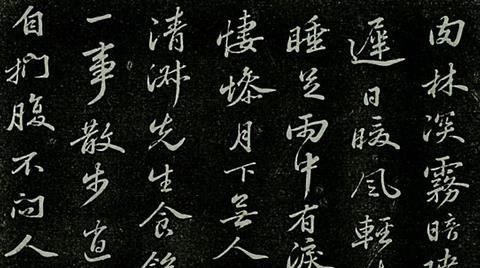 肉林深霧暗曉
遲日暖風輕
睡足雨中有淚
悽慘月下無人
清淑先生食飽
一事散步逍
自捫腹不問人